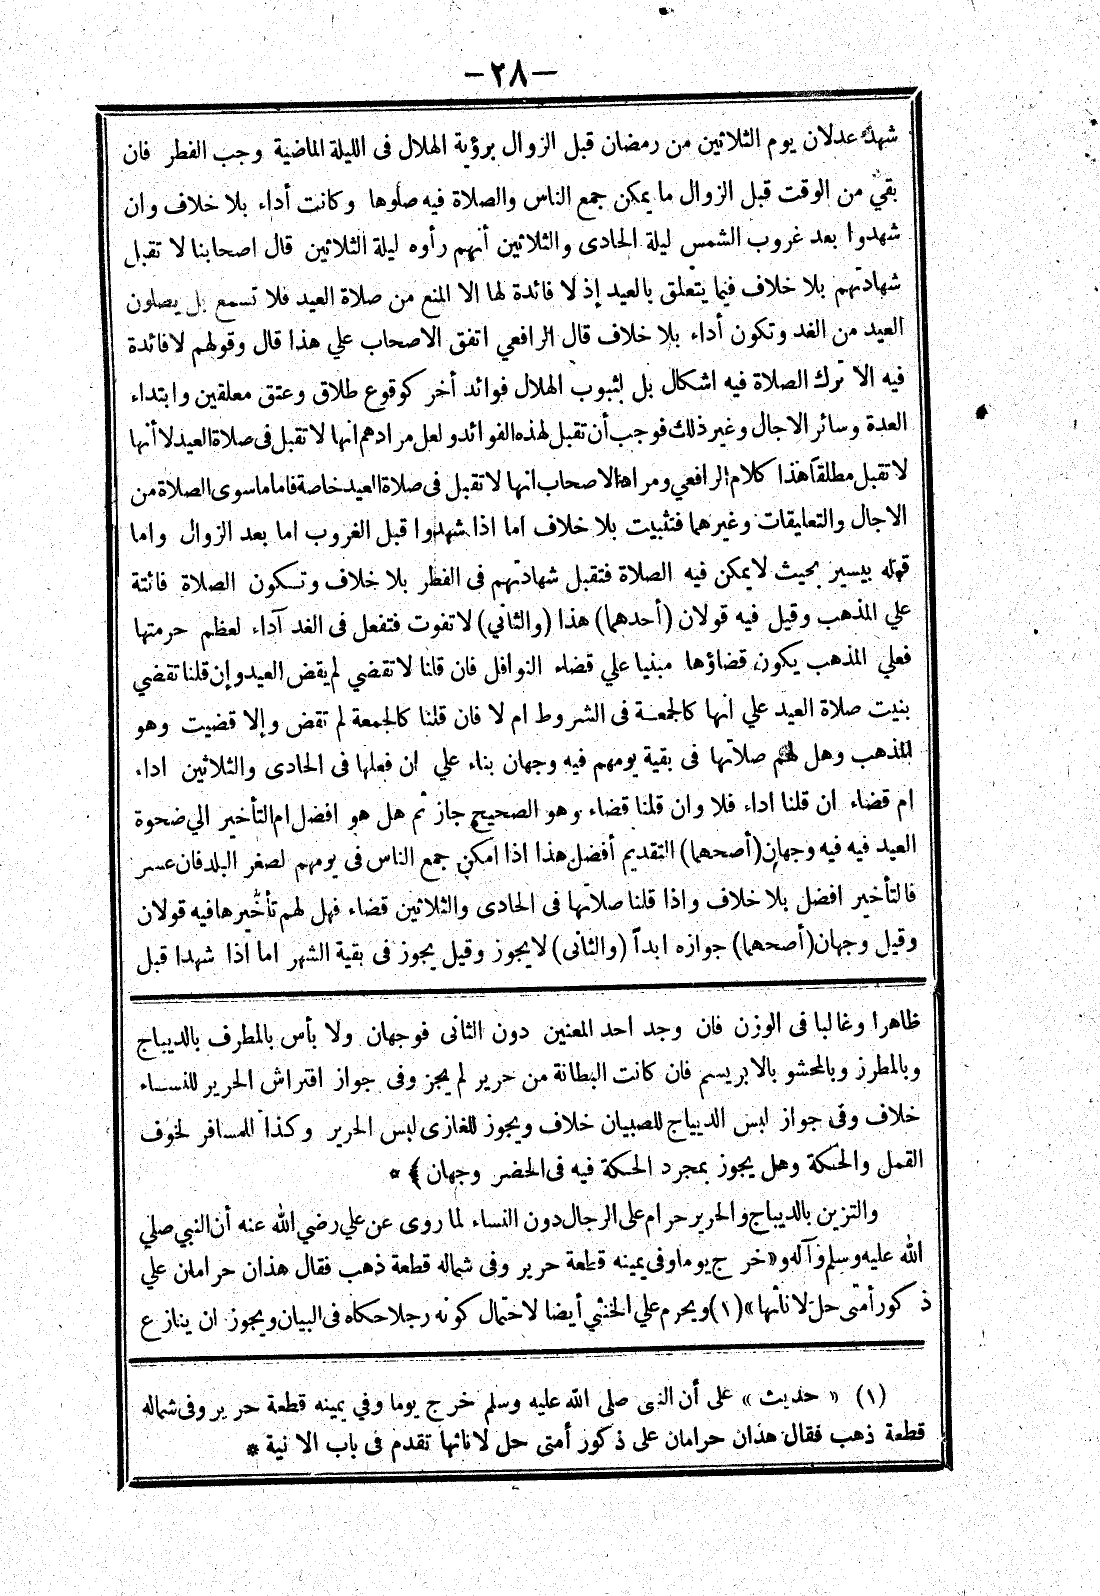 -٢٨-
شهد عدلان يوم الثلاثين من رمضان قبل الزوال برؤية الهلال فى الليلة الماضية وجب الفطر فان
بقي من الوقت قبل الزوال ما يمكن جمع الناس والصلاة فيه صلوها وكانت أداء بلا خلاف وان
شهدوا بعد غروب الشمس ليلة الحادى والثلاثين أنهم رأوه ليلة الثلاثين قال اصحابنا لا تقبل
شهادتهم بلا خلاف فيما يتعلق بالعيد إذ لا فائدة لها الا المنع من صلاة العيد فلا تسمع بل يصلون
العيد من الغد وتكون أداء بلا خلاف قال الرافعي اتفق الاصحاب علي هذا قال وقولهم لا فائدة
فيه الا ترك الصلاة فيه اشكال بل لثبوب الهلال فوائد أخر كوقوع طلاق وعتق معلقين وابتداء
العدة وسائر الاجال وغير ذلك فوجب أن تقبل لهذه الفوائد ولعل مرادهم انها لا تقبل فى صلاة العيد لا أنها
لا تقبل مطلقاً هذا كلام الرافعي ومراد الاصحاب انها لا تقبل فى صلاة العيد خاصة فاما ما سوى الصلاة من
الاجال والتعليقات وغيرهما فتثبت بلا خلاف اما اذا شهدوا قبل الغروب اما بعد الزوال واما
قبله بيسير بحيث لا يمكن فيه الصلاة فتقبل شهادتهم فى الفطر بلا خلاف وتكون الصلاة فائتة
علي المذهب وقيل فيه قولان (أحدهما) هذا (والثاني) لا تفوت فتفعل فى الغد آداء لعظم حرمتها
فعلي المذهب يكون قضاؤها مبنيا علي قضاء النوافل فان قلنا لا تقضي لم يقض العيد وإن قلنا تقضي
بنيت صلاة العيد علي انها كالجمعة فى الشروط ام لا فان قلنا كالجمعة لم تقض وإلا قضيت وهو
المذهب وهل لهم صلاتها فى بقية يومهم فيه وجهان بناء علي ان فعلها فى الحادى والثلاثين اداء
ام قضاء ان قلنا اداء فلا وان قلنا قضاء وهو الصحيح جاز ثم هل هو افضل ام التأخير الي ضحوة
العيد فيه فيه وجهان (أصحهما) التقديم أفضل هذا اذا امكن جمع الناس فى يومهم لصغر البلد فان عسر
فالتأخير افضل بلا خلاف واذا قلنا صلاتها فى الحادى والثلاثين قضاء فهل لهم تأخيرها فيه قولان
وقيل وجهان (أصحهما) جوازه ابداً (والثانى) لا يجوز وقيل يجوز فى بقية الشهر اما اذا شهدا قبل
ظاهرا وغالبا فى الوزن فان وجد احد المعنين دون الثانى فوجهان ولا بأس بالمطرف بالديباج
وبالمطرز وبالمحشو بالابريسم فان كانت البطانة من حرير لم يجز وفى جواز افتراش الحرير للنساء
خلاف وفى جواز لبس الديباج للصبيان خلاف ويجوز للغازى لبس الحرير وكذا للمسافر لخوف
القمل والحكة وهل يجوز بمجرد الحكة فيه فى الحضر وجهان ﴾ *
والتزين بالديباج والحرير حرام على الرجال دون النساء لما روى عن علي رضي الله عنه أن النبي صلي
الله عليه وسلم وآله و«خرج يوما وفى يمينه قطعة حرير وفى شماله قطعة ذهب فقال هذان حرامان علي
ذكور أمتى حل لاناثها» (١) ويحرم علي الخنثي أيضا لاحتمال كونه رجلا حكاه فى البيان ويجوز ان ينازع
(١) « حديث » على أن النبى صلى الله عليه وسلم خرج يوما وفي يمينه قطعة حرير وفى شماله
قطعة ذهب فقال هذان حرامان على ذكور أمتى حل لاناثها تقدم فى باب الانية *